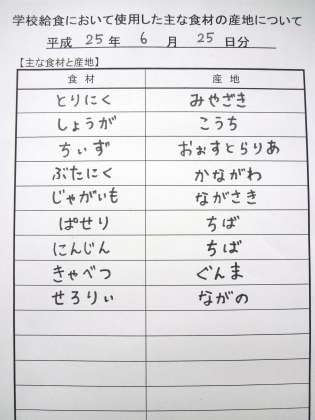 学校給食において使用した主な食材の産地について
平成 25 年 6 月 25 日分
【主な食材と産地】
食 材 産 地
とりにく みやざき
しょうが こうち
ちぃず おぉすとらりあ
ぶたにく かながわ
じゃがいも ながさき
ぱせり ちば
にんじん ちば
きゃべつ ぐんま
せろりぃ ながの